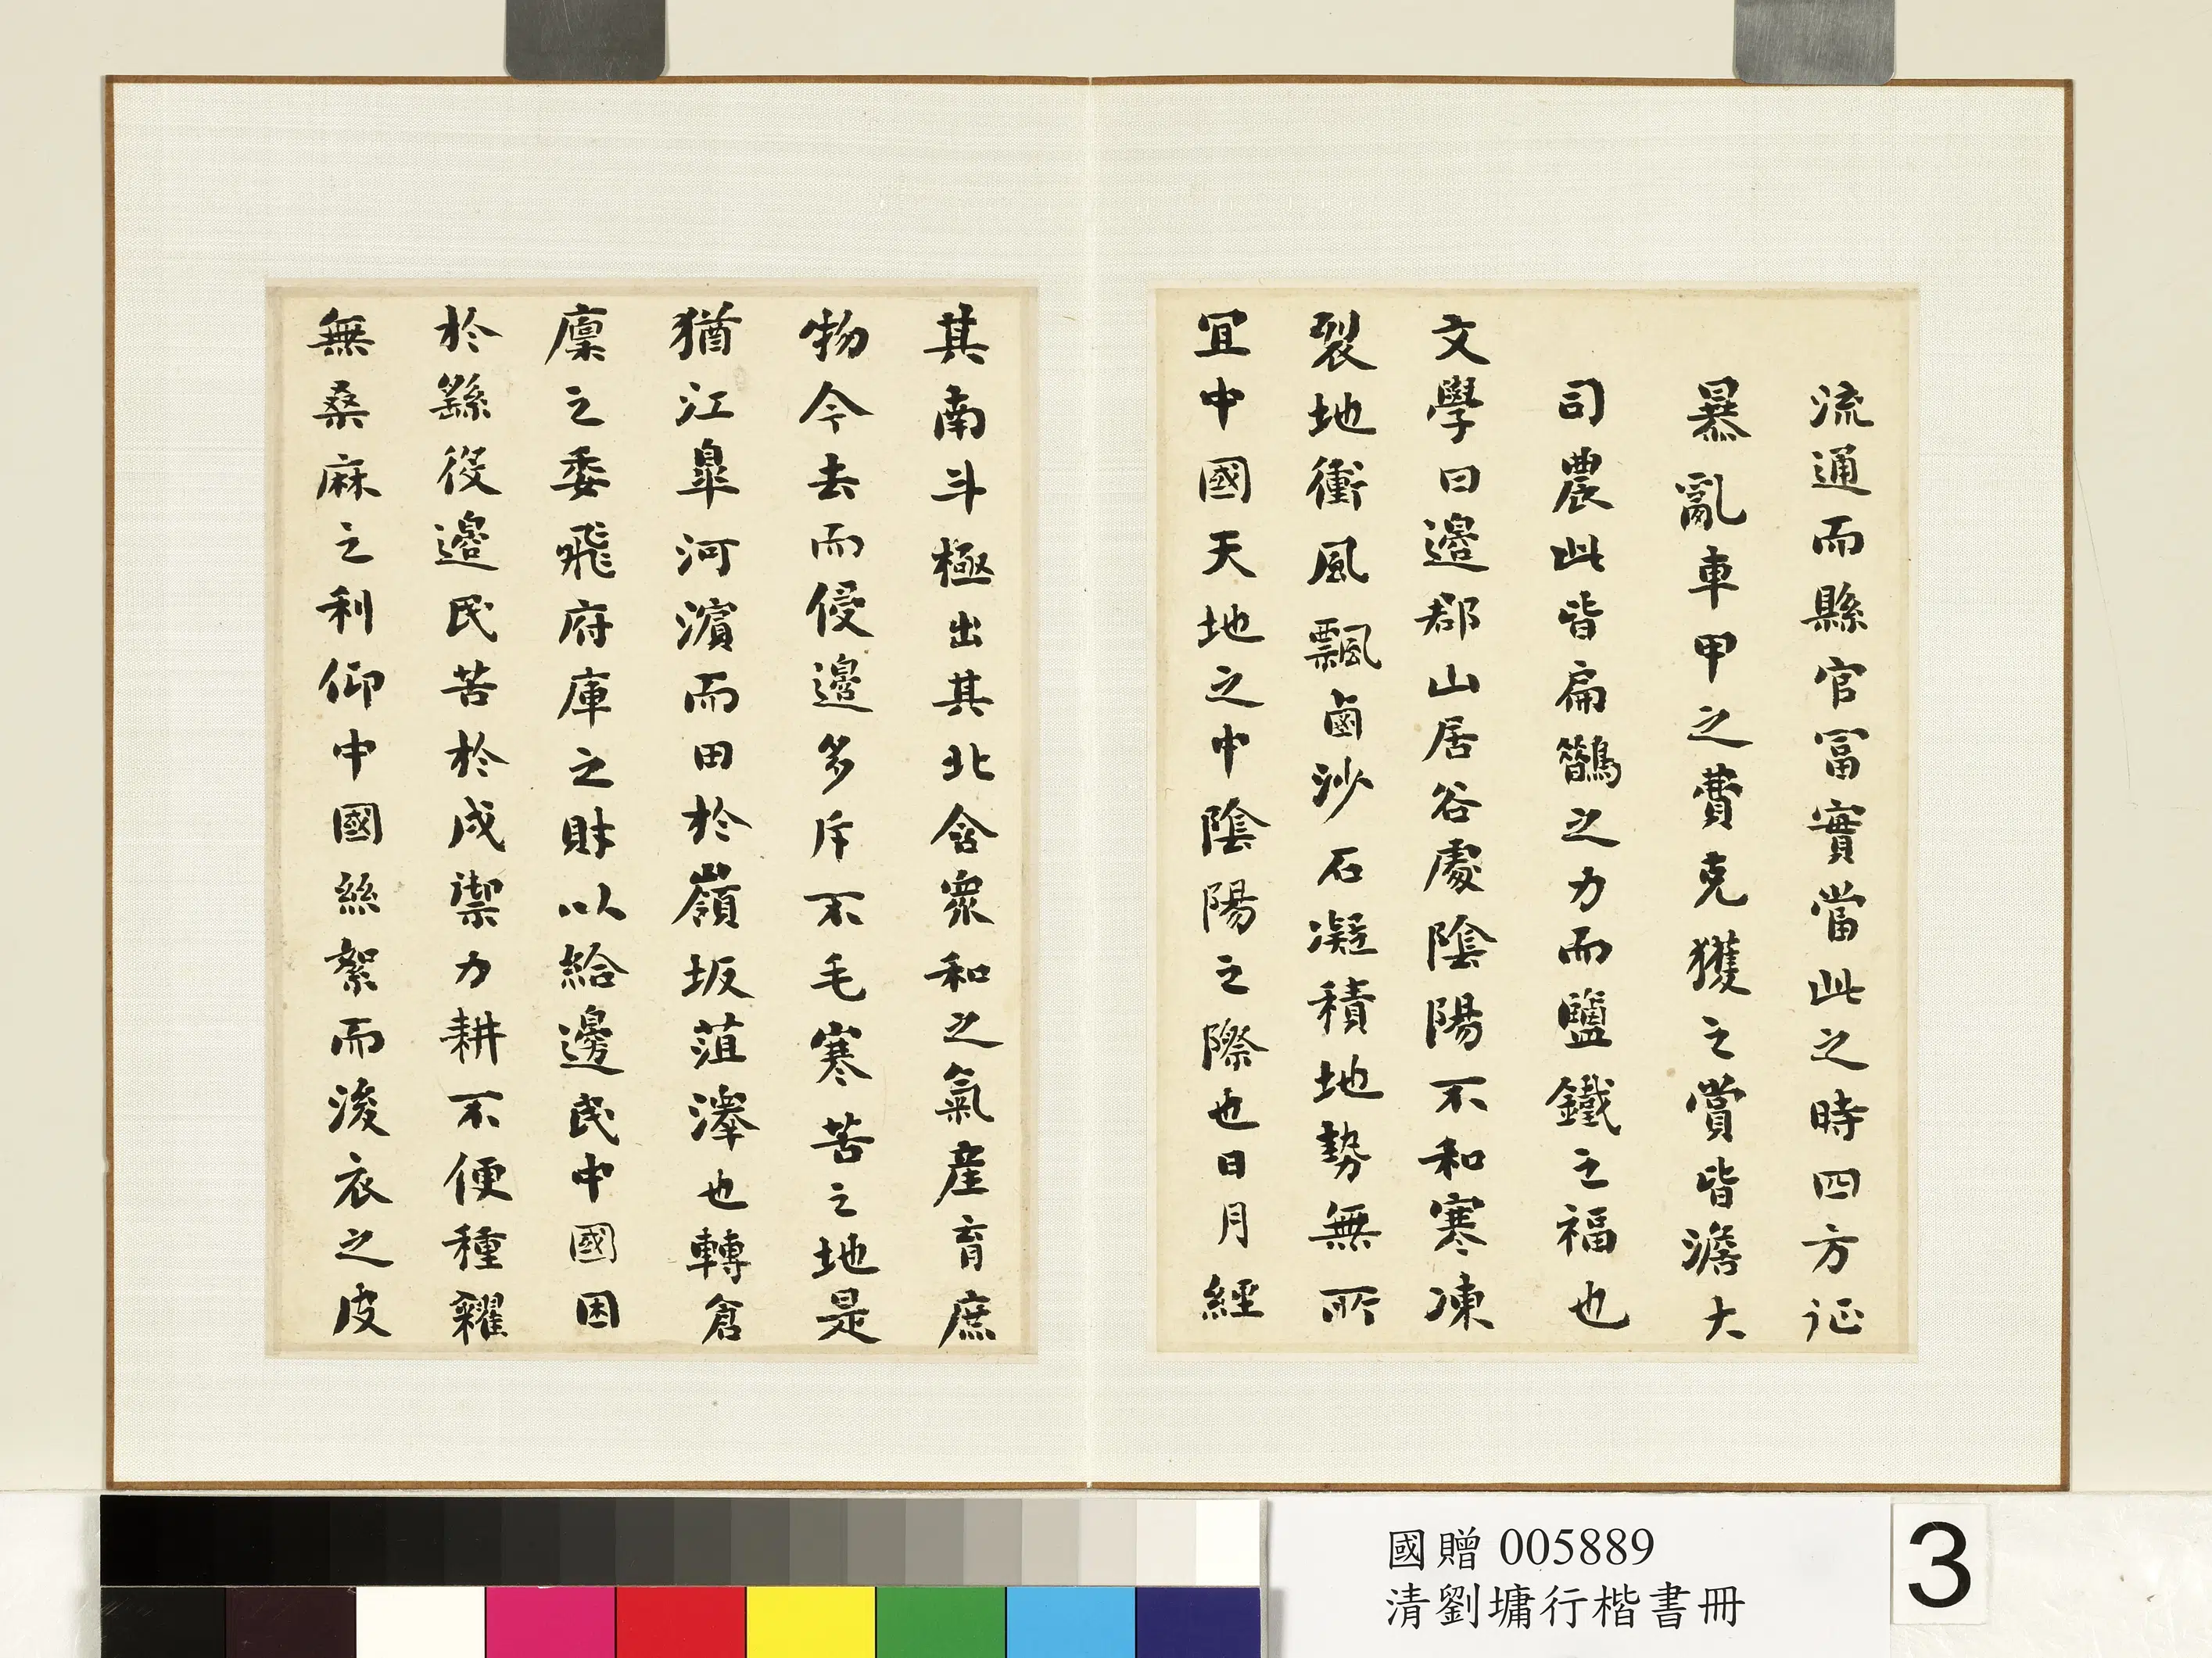 流通而縣官富實當此之時四方征
暴亂車甲之費克獲之賞皆澹大
司農此皆扁鵲之力而鹽鐵之福也
文學曰邊郡山居谷處陰陽不和寒凍
裂地衝風飄鹵沙石凝積地勢無所
宜中國天地之中陰陽之際也日月經
其南斗極出其北含衆和之氣産育庶
物今去而侵邊多斥不毛寒苦之地是
猶江皐河濵而田於嶺坂菹澤也轉倉
廩之委飛府庫之財以給邊民中國困
於繇役邊民苦於戍禦力耕不便種糴
無桑麻之利仰中國絲絮而後衣之皮
國贈 005889
清劉墉行楷書冊
3